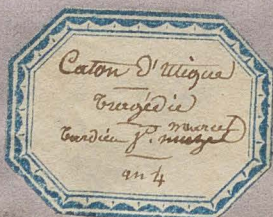 Caton d'Utique
tragédie
tardieu St. marcel
an 4